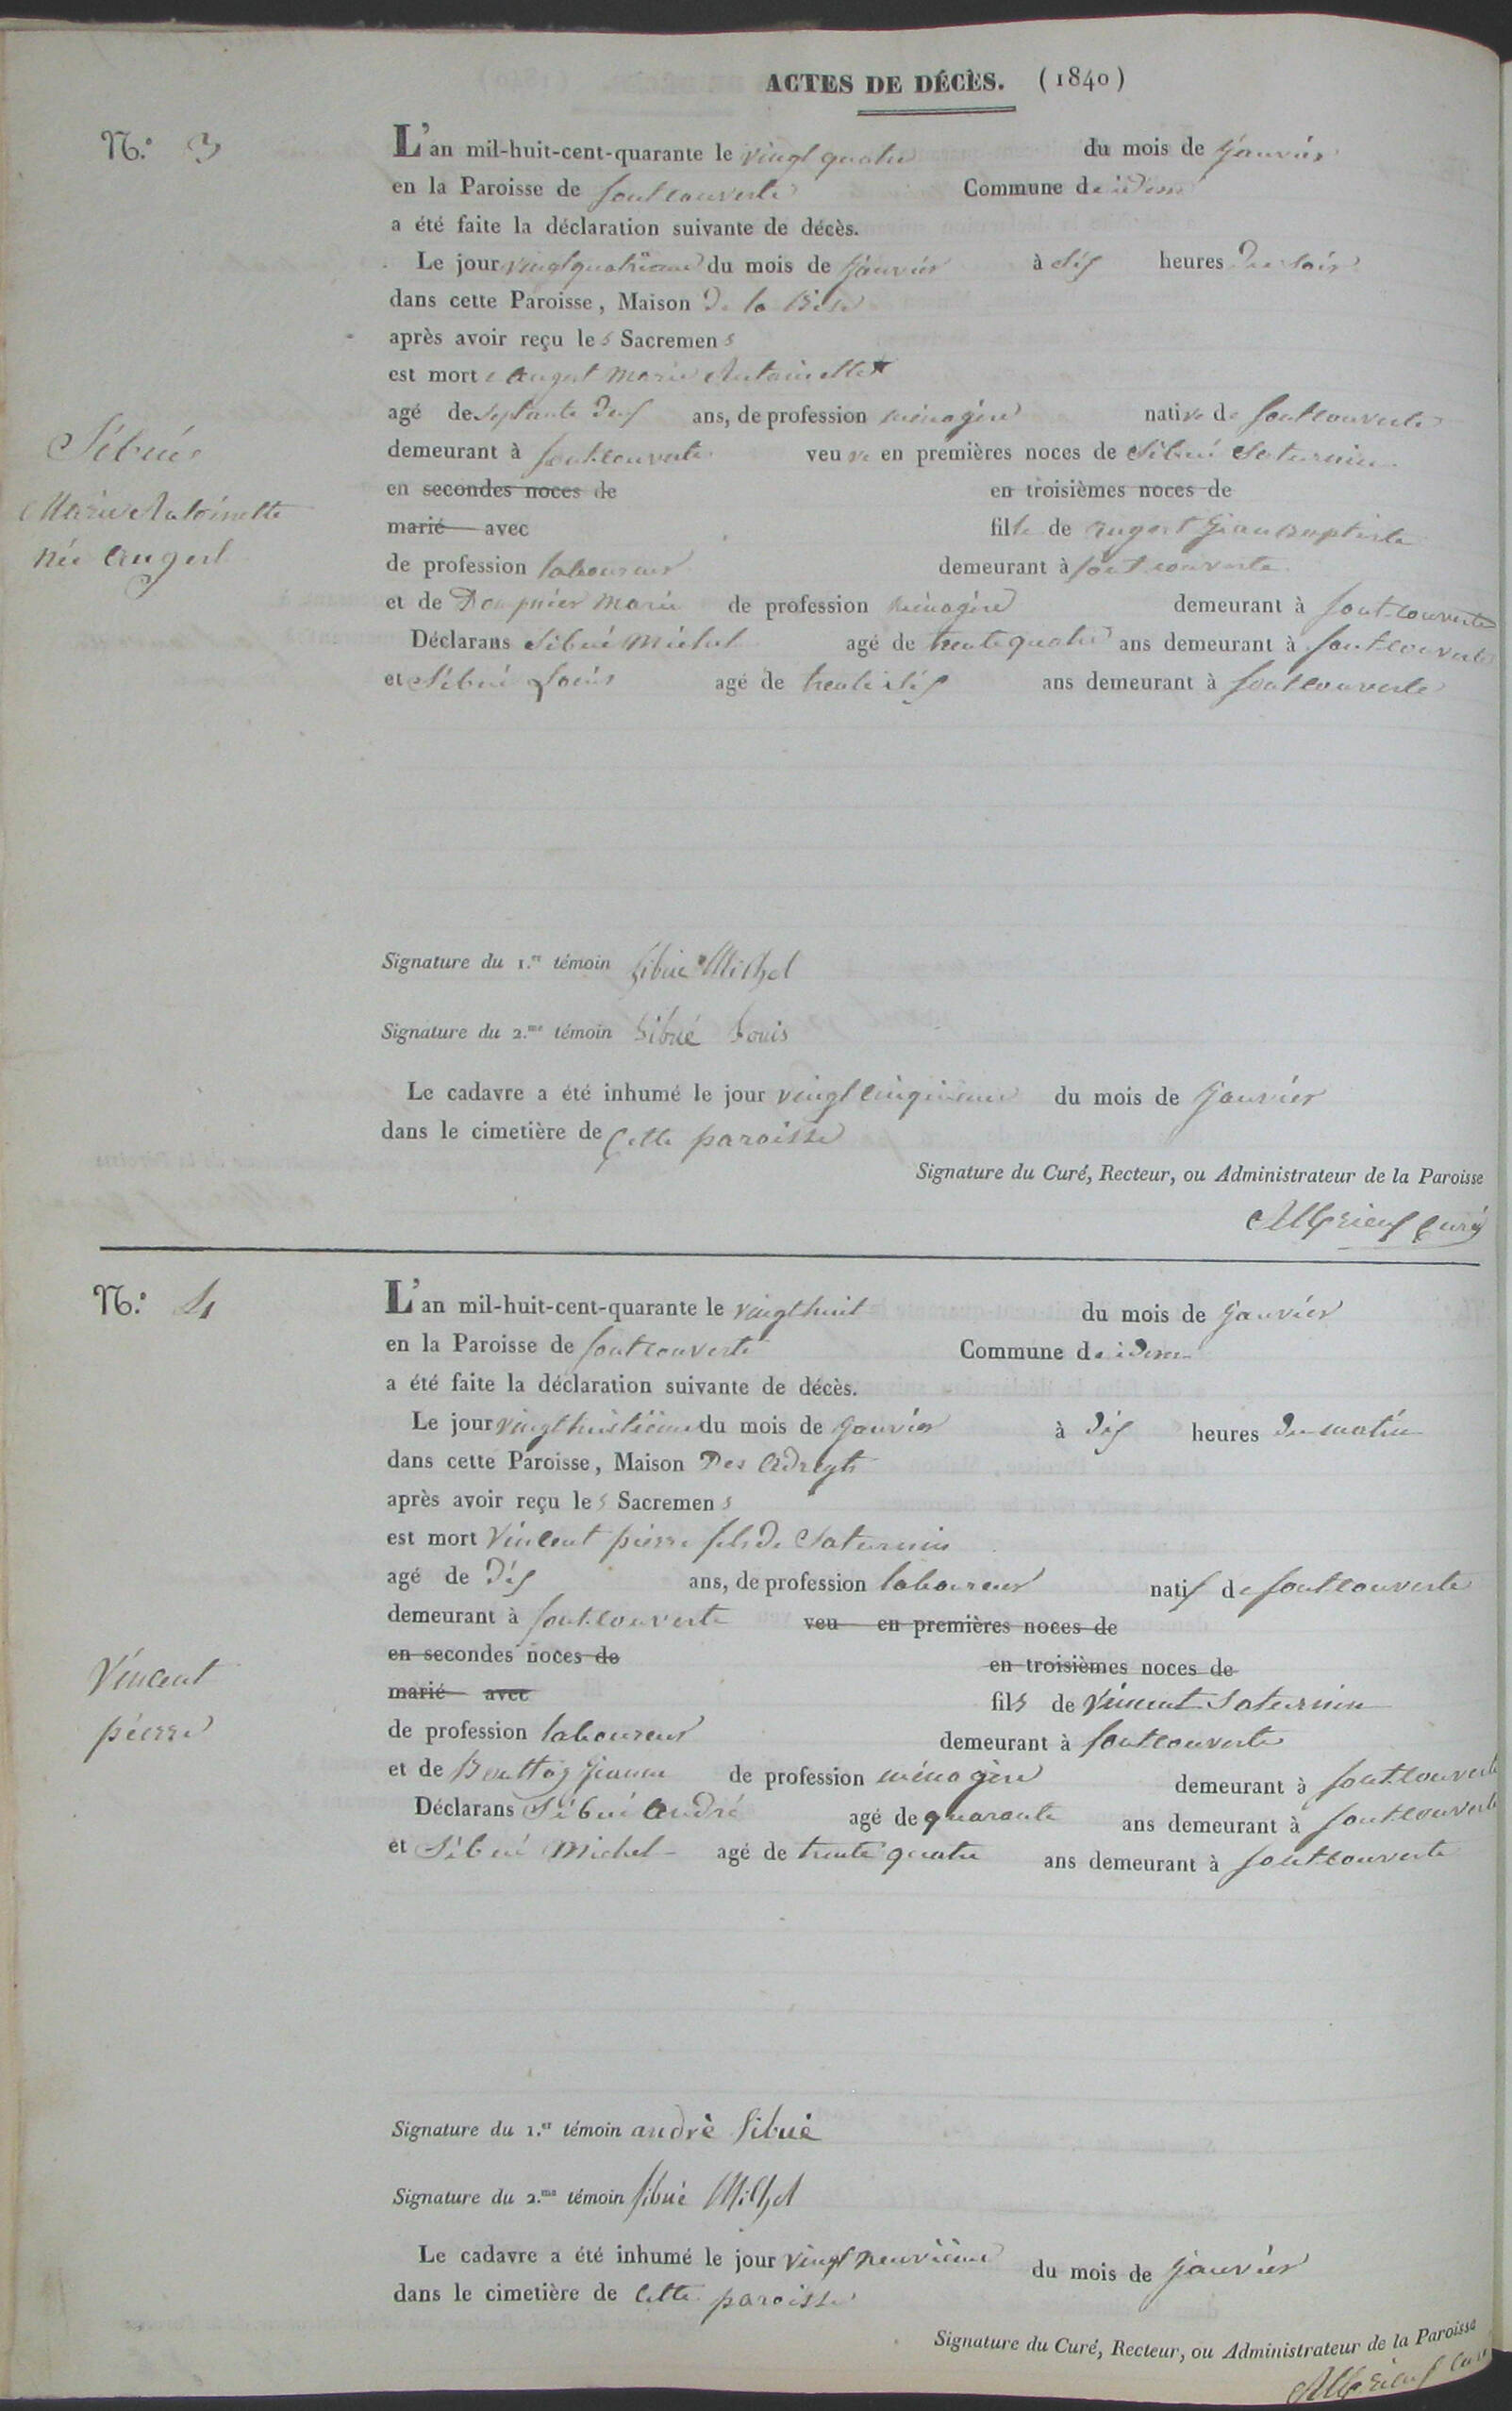 ACTES DE DÉCÈS. (1840)
N.º 3
L'an mil-huit-cent-quarante le vingt quatre du mois de Janvier
en la Paroisse de fontcouverte Commune de idem
a été faite la déclaration suivante de décès.
Le jour vingtquatrieme du mois de Janvier à dix heures du soir
dans cette Paroisse, Maison de la
après avoir reçu les Sacremens
est morte Augert Marie Antoinette
agé de septante deux ans, de profession ménagère native de fontcouverte
demeurant à fontcouverte veuve en premières noces de Sibué Saturnin
en secondes noces de en troisièmes noces de
marié avec fille de Augert Jean Baptiste
de profession laboureur demeurant à fontcouverte
et de Dompnier Marie de profession ménagère demeurant à fontcouverte
Déclarans Sibué Michel agé de trente quatre ans demeurant à fontcouverte
et Sibué Louis agé de trente six ans demeurant à fontcouverte
Sibué
Marie Antoinette
née Augert
Signature du 1.er témoin Sibué Michel
Signature du 2.me témoin Sibué Louis
Le cadavre a été inhumé le jour vingt cinquieme du mois de Janvier
dans le cimetière de cette paroisse
Signature du Curé, Recteur, ou Administrateur de la Paroisse
curé
N.º 4
L'an mil-huit-cent-quarante le vingt huit du mois de Janvier
en la Paroisse de fontcouverte Commune de idem
a été faite la déclaration suivante de décès.
Le jour vingt huitieme du mois de Janvier à dix heures du matin
dans cette Paroisse, Maison Des
après avoir reçu les Sacremens
est mort Vincent pierre fils de Saturnin
agé de Dix ans, de profession laboureur natif de fontcouverte
demeurant à fontcouverte veu en premières noces de
en secondes noces de en troisièmes noces de
marié avec fils de Vincent Saturnin
de profession laboureur demeurant à fontcouverte
et de Bouttaz Jeanne de profession ménagère demeurant à fontcouverte
Déclarans Sibué André agé de quarante ans demeurant à fontcouverte
et Sibué Michel agé de trente quatre ans demeurant à fontcouverte
Vincent
pierre
Signature du 1.er témoin andrè Sibuè
Signature du 2.me témoin Sibué Michel
Le cadavre a été inhumé le jour vingt neuvième du mois de Janvier
dans le cimetière de cette paroisse
Signature du Curé, Recteur, ou Administrateur de la Paroisse